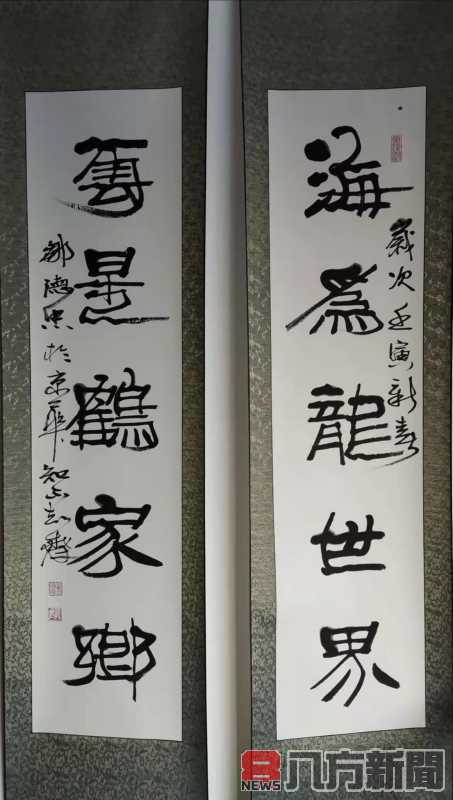 海爲龍世界
歲次壬寅新春
雲是鶴家鄉
鄒德忠於京華
NEWS 八方新聞